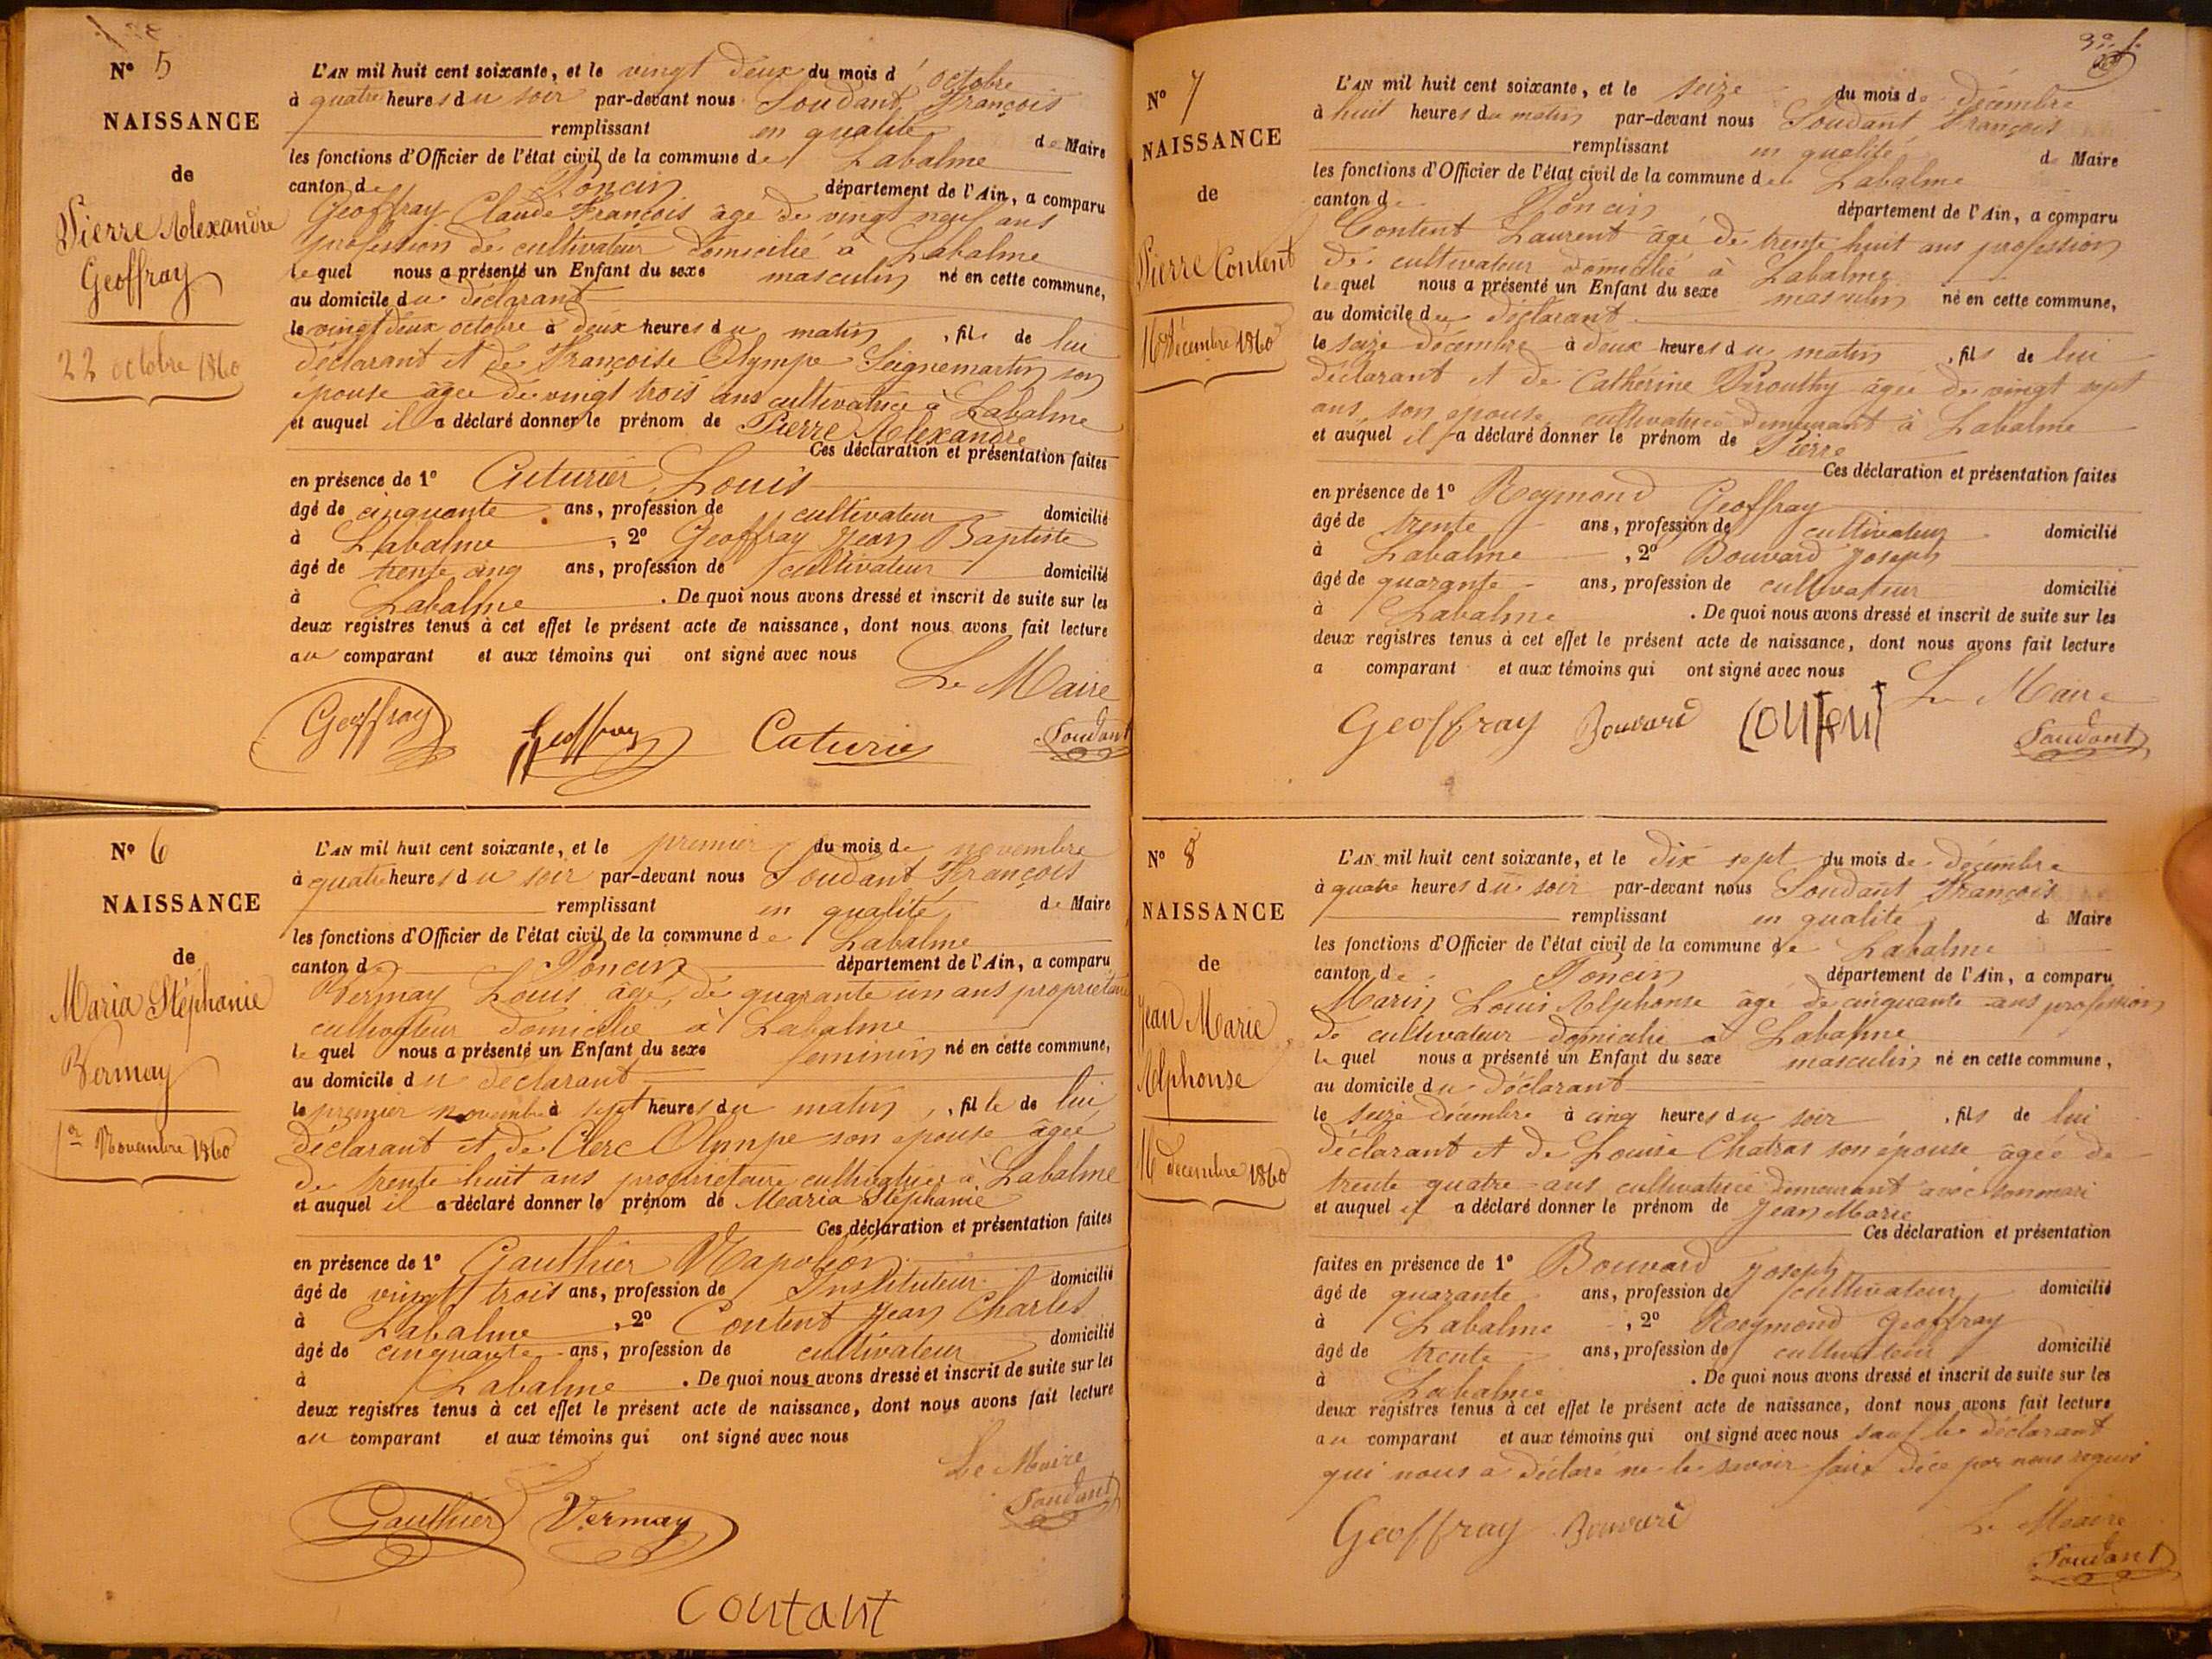 N° 5
NAISSANCE
de
Pierre Alexandre
Geoffray
22 octobre 1860
L'AN mil huit cent soixante, et le vingt deux du mois d'octobre
à quatre heures du soir par-devant nous Soudant François
remplissant en qualité de Maire
les fonctions d'Officier de l'état civil de la commune de Labalme
canton de Poncin département de l'Ain, a comparu
Geoffray Claude François âgé de vingt neuf ans
profession de cultivateur domicilié à Labalme
lequel nous a présenté un Enfant du sexe masculin né en cette commune,
au domicile du déclarant
le vingt deux octobre à deux heures du matin, fils de lui
déclarant et de Françoise Olympe Seignemartin son
épouse âgée de vingt trois ans cultivatrice à Labalme
et auquel il a déclaré donner le prénom de Pierre Alexandre
Ces déclaration et présentation faites
en présence de 1° Cuturier Louis
âgé de cinquante ans, profession de cultivateur domicilié
à Labalme, 2° Geoffray Jean Baptiste
âgé de trente cinq ans, profession de cultivateur domicilié
à Labalme. De quoi nous avons dressé et inscrit de suite sur les
deux registres tenus à cet effet le présent acte de naissance, dont nous avons fait lecture
au comparant et aux témoins qui ont signé avec nous
Le Maire
Geoffray Geoffray Cuturier Soudant
N° 6
NAISSANCE
de
Maria Stéphanie
Vermay
1er Novembre 1860
L'AN mil huit cent soixante, et le premier du mois de novembre
à quatre heures du soir par-devant nous Soudant François
remplissant en qualité de Maire
les fonctions d'Officier de l'état civil de la commune de Labalme
canton de Poncin département de l'Ain, a comparu
Vermay Louis âgé de quarante un ans propriétaire
cultivateur domicilié à Labalme
lequel nous a présenté un Enfant du sexe feminin né en cette commune,
au domicile du déclarant
le premier novembre à sept heures du matin, fille de lui
déclarant et de Clerc Olympe son épouse âgée
de trente huit ans propriétaire cultivatrice à Labalme
et auquel il a déclaré donner le prénom de Maria Stéphanie
Ces déclaration et présentation faites
en présence de 1° Gauthier Napoléon
âgé de vingt trois ans, profession de Instituteur domicilié
à Labalme, 2° Content Jean Charles
âgé de cinquante ans, profession de cultivateur domicilié
à Labalme. De quoi nous avons dressé et inscrit de suite sur les
deux registres tenus à cet effet le présent acte de naissance, dont nous avons fait lecture
au comparant et aux témoins qui ont signé avec nous
Le Maire
Gauthier Vermay Soudant
Contant
N° 7
NAISSANCE
de
Pierre Content
16 Décembre 1860
L'AN mil huit cent soixante, et le seize du mois de décembre
à huit heures du matin par-devant nous Soudant François
remplissant en qualité de Maire
les fonctions d'Officier de l'état civil de la commune de Labalme
canton de Poncin département de l'Ain, a comparu
Content Laurent âgé de trente huit ans profession
de cultivateur domicilié à Labalme
lequel nous a présenté un Enfant du sexe masculin né en cette commune,
au domicile du déclarant
le seize décembre à deux heures du matin, fils de lui
déclarant et de Catherine âgée de vingt sept
ans, son épouse, cultivatrice demeurant à Labalme
et auquel il a déclaré donner le prénom de Pierre
Ces déclaration et présentation faites
en présence de 1° Reymond Geoffray
âgé de trente ans, profession de cultivateur domicilié
à Labalme, 2° Bouvard Joseph
âgé de quarante ans, profession de cultivateur domicilié
à Labalme. De quoi nous avons dressé et inscrit de suite sur les
deux registres tenus à cet effet le présent acte de naissance, dont nous avons fait lecture
a comparant et aux témoins qui ont signé avec nous
Le Maire
Geoffray Bouvard Content Soudant
N° 8
NAISSANCE
de
Jean Marie
Alphonse
16 decembre 1860
L'AN mil huit cent soixante, et le dix sept du mois de décembre
à quatre heures du soir par-devant nous Soudant François
remplissant en qualité de Maire
les fonctions d'Officier de l'état civil de la commune de Labalme
canton de Poncin département de l'Ain, a comparu
Marin Louis Alphonse âgé de cinquante ans profession
de cultivateur domicilié à Labalme
lequel nous a présenté un Enfant du sexe masculin né en cette commune,
au domicile du déclarant
le seize décembre à cinq heures du soir, fils de lui
déclarant et de Louise Chatras son épouse âgée de
trente quatre ans cultivatrice demeurant avec son mari
et auquel il a déclaré donner le prénom de Jean Marie
Ces déclaration et présentation
faites en présence de 1° Bouvard Joseph
âgé de quarante ans, profession de cultivateur domicilié
à Labalme, 2° Reymond Geoffray
âgé de trente ans, profession de cultivateur domicilié
à Labalme. De quoi nous avons dressé et inscrit de suite sur les
deux registres tenus à cet effet le présent acte de naissance, dont nous avons fait lecture
au comparant et aux témoins qui ont signé avec nous sauf le déclarant
qui nous a déclaré ne le savoir faire de ce par nous requis
Le Maire
Geoffray Bouvard Soudant